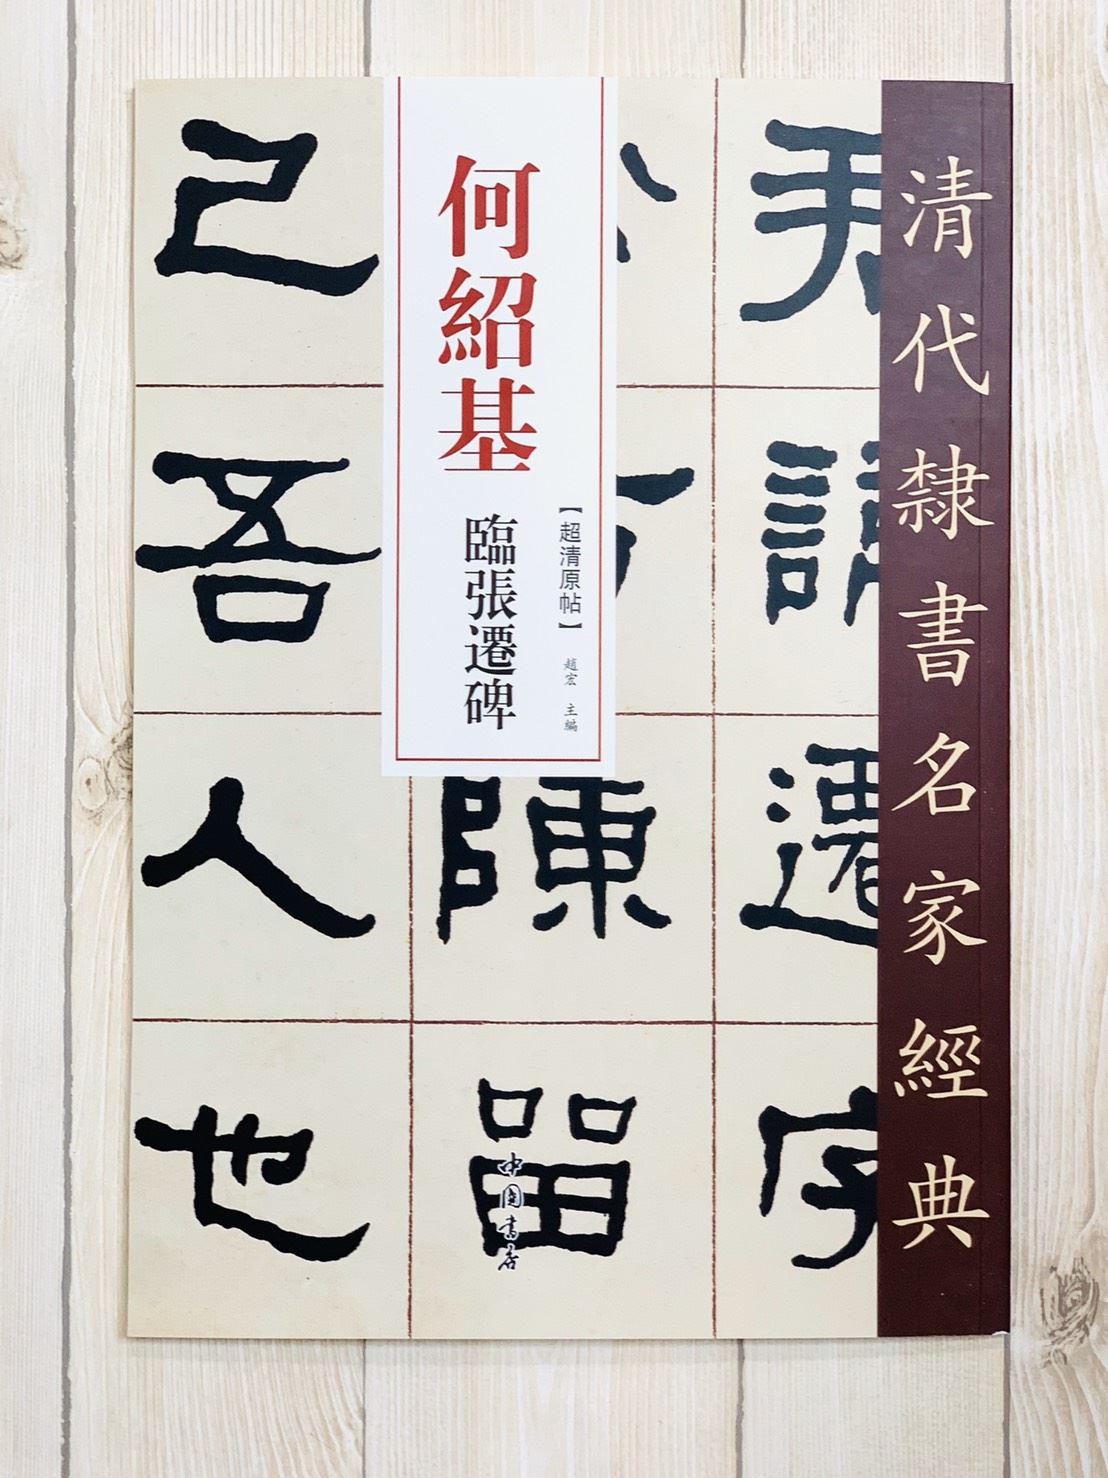 清代隸書名家經典
何紹基
臨張遷碑
【超清原帖】
趙宏 主編
君諱遷字
陳留
己吾人也
中國書店